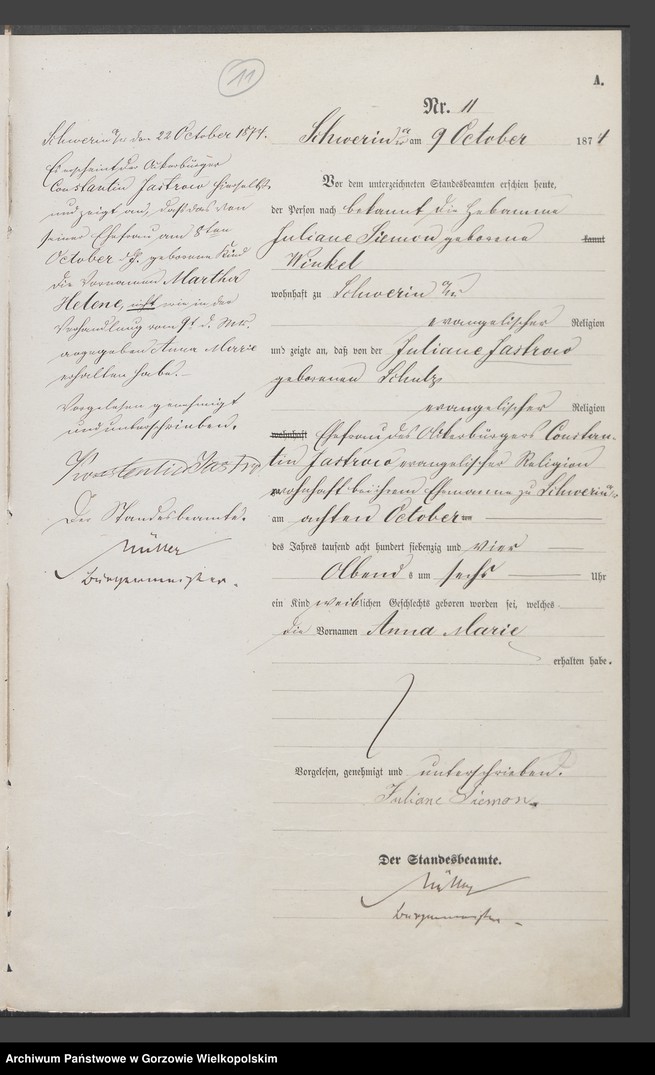 11
A.
Nr. 11
Schwerin a/W am 9 October 1874
Vor dem unterzeichneten Standesbeamten erschien heute,
der Person nach bekannt die Hebamme
Juliane Siemon geborene kannt
Winkel
wohnhaft zu Schwerin a/W
evangelischer Religion
und zeigte an, daß von der Juliane Jastrow
geborenen Schulz
evangelischer Religion
wohnhaft Ehefrau des Ackerbürgers Constan-
tin Jastrow evangelischer Religion
wohnhaft bei ihrem Ehemanne zu Schwerin a/W
am achten October
des Jahres tausend acht hundert siebenzig und vier
Abends um sechs Uhr
ein Kind weiblichen Geschlechts geboren worden sei, welches
die Vornamen Anna Marie
erhalten habe.
Vorgelesen, genehmigt und unterschrieben.
Juliane Siemon.
Der Standesbeamte.
Müller
Bürgermeister.
Schwerin a/W den 22 October 1874.
Es erscheint der Ackerbürger
Constantin Jastrow hierselbst
und zeigt an, daß das von
seiner Ehefrau am 8ten
October geborene Kind
die Vornamen Martha
Helene, nicht wie in der
Verhandlung vom 9t d. Mts.
angegeben Anna Marie
erhalten habe.
Vorgelesen genehmigt
und unterschrieben.
Constantin Jastrow
Der Standesbeamte.
Müller
Bürgermeister.
Archiwum Państwowe w Gorzowie Wielkopolskim